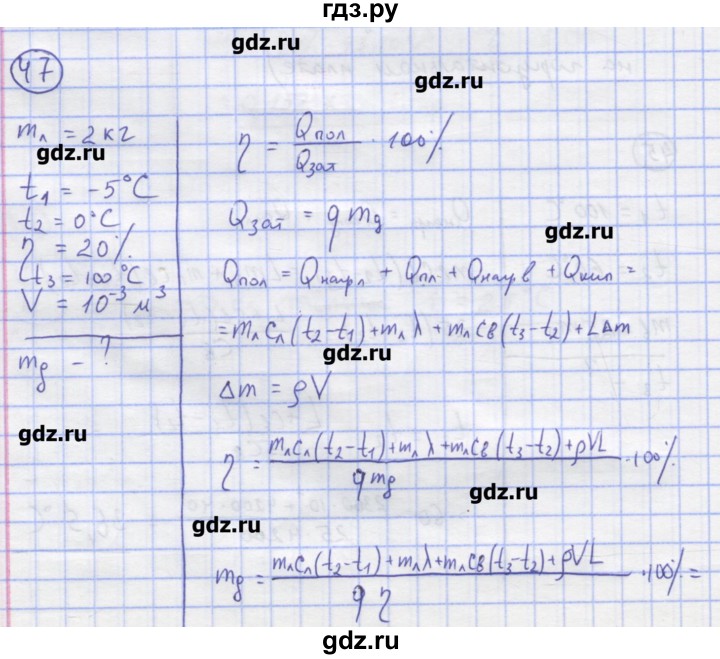 гдз.ру
gdz.ru
gdz.ru
47
m_л = 2 кг
gdz.ru
t_1 = -5°C
t_2 = 0°C
η = 20%
t_3 = 100°C
V = 10^-3 м^3
m_g - ?
gdz.ru
η = Q_пол / Q_зат · 100%
Q_зат = q m_g
gdz.ru
Q_пол = Q_нагр л + Q_пл + Q_нагр в + Q_кип =
= m_л c_л (t_2 - t_1) + m_л λ + m_л c_в (t_3 - t_2) + L Δm
gdz.ru
Δm = ρV
η = m_л c_л (t_2 - t_1) + m_л λ + m_л c_в (t_3 - t_2) + ρVL / q m_g · 100%
gdz.ru
gdz.ru
m_g = m_л c_л (t_2 - t_1) + m_л λ + m_л c_в (t_3 - t_2) + ρVL / q η · 100% =
gdz.ru